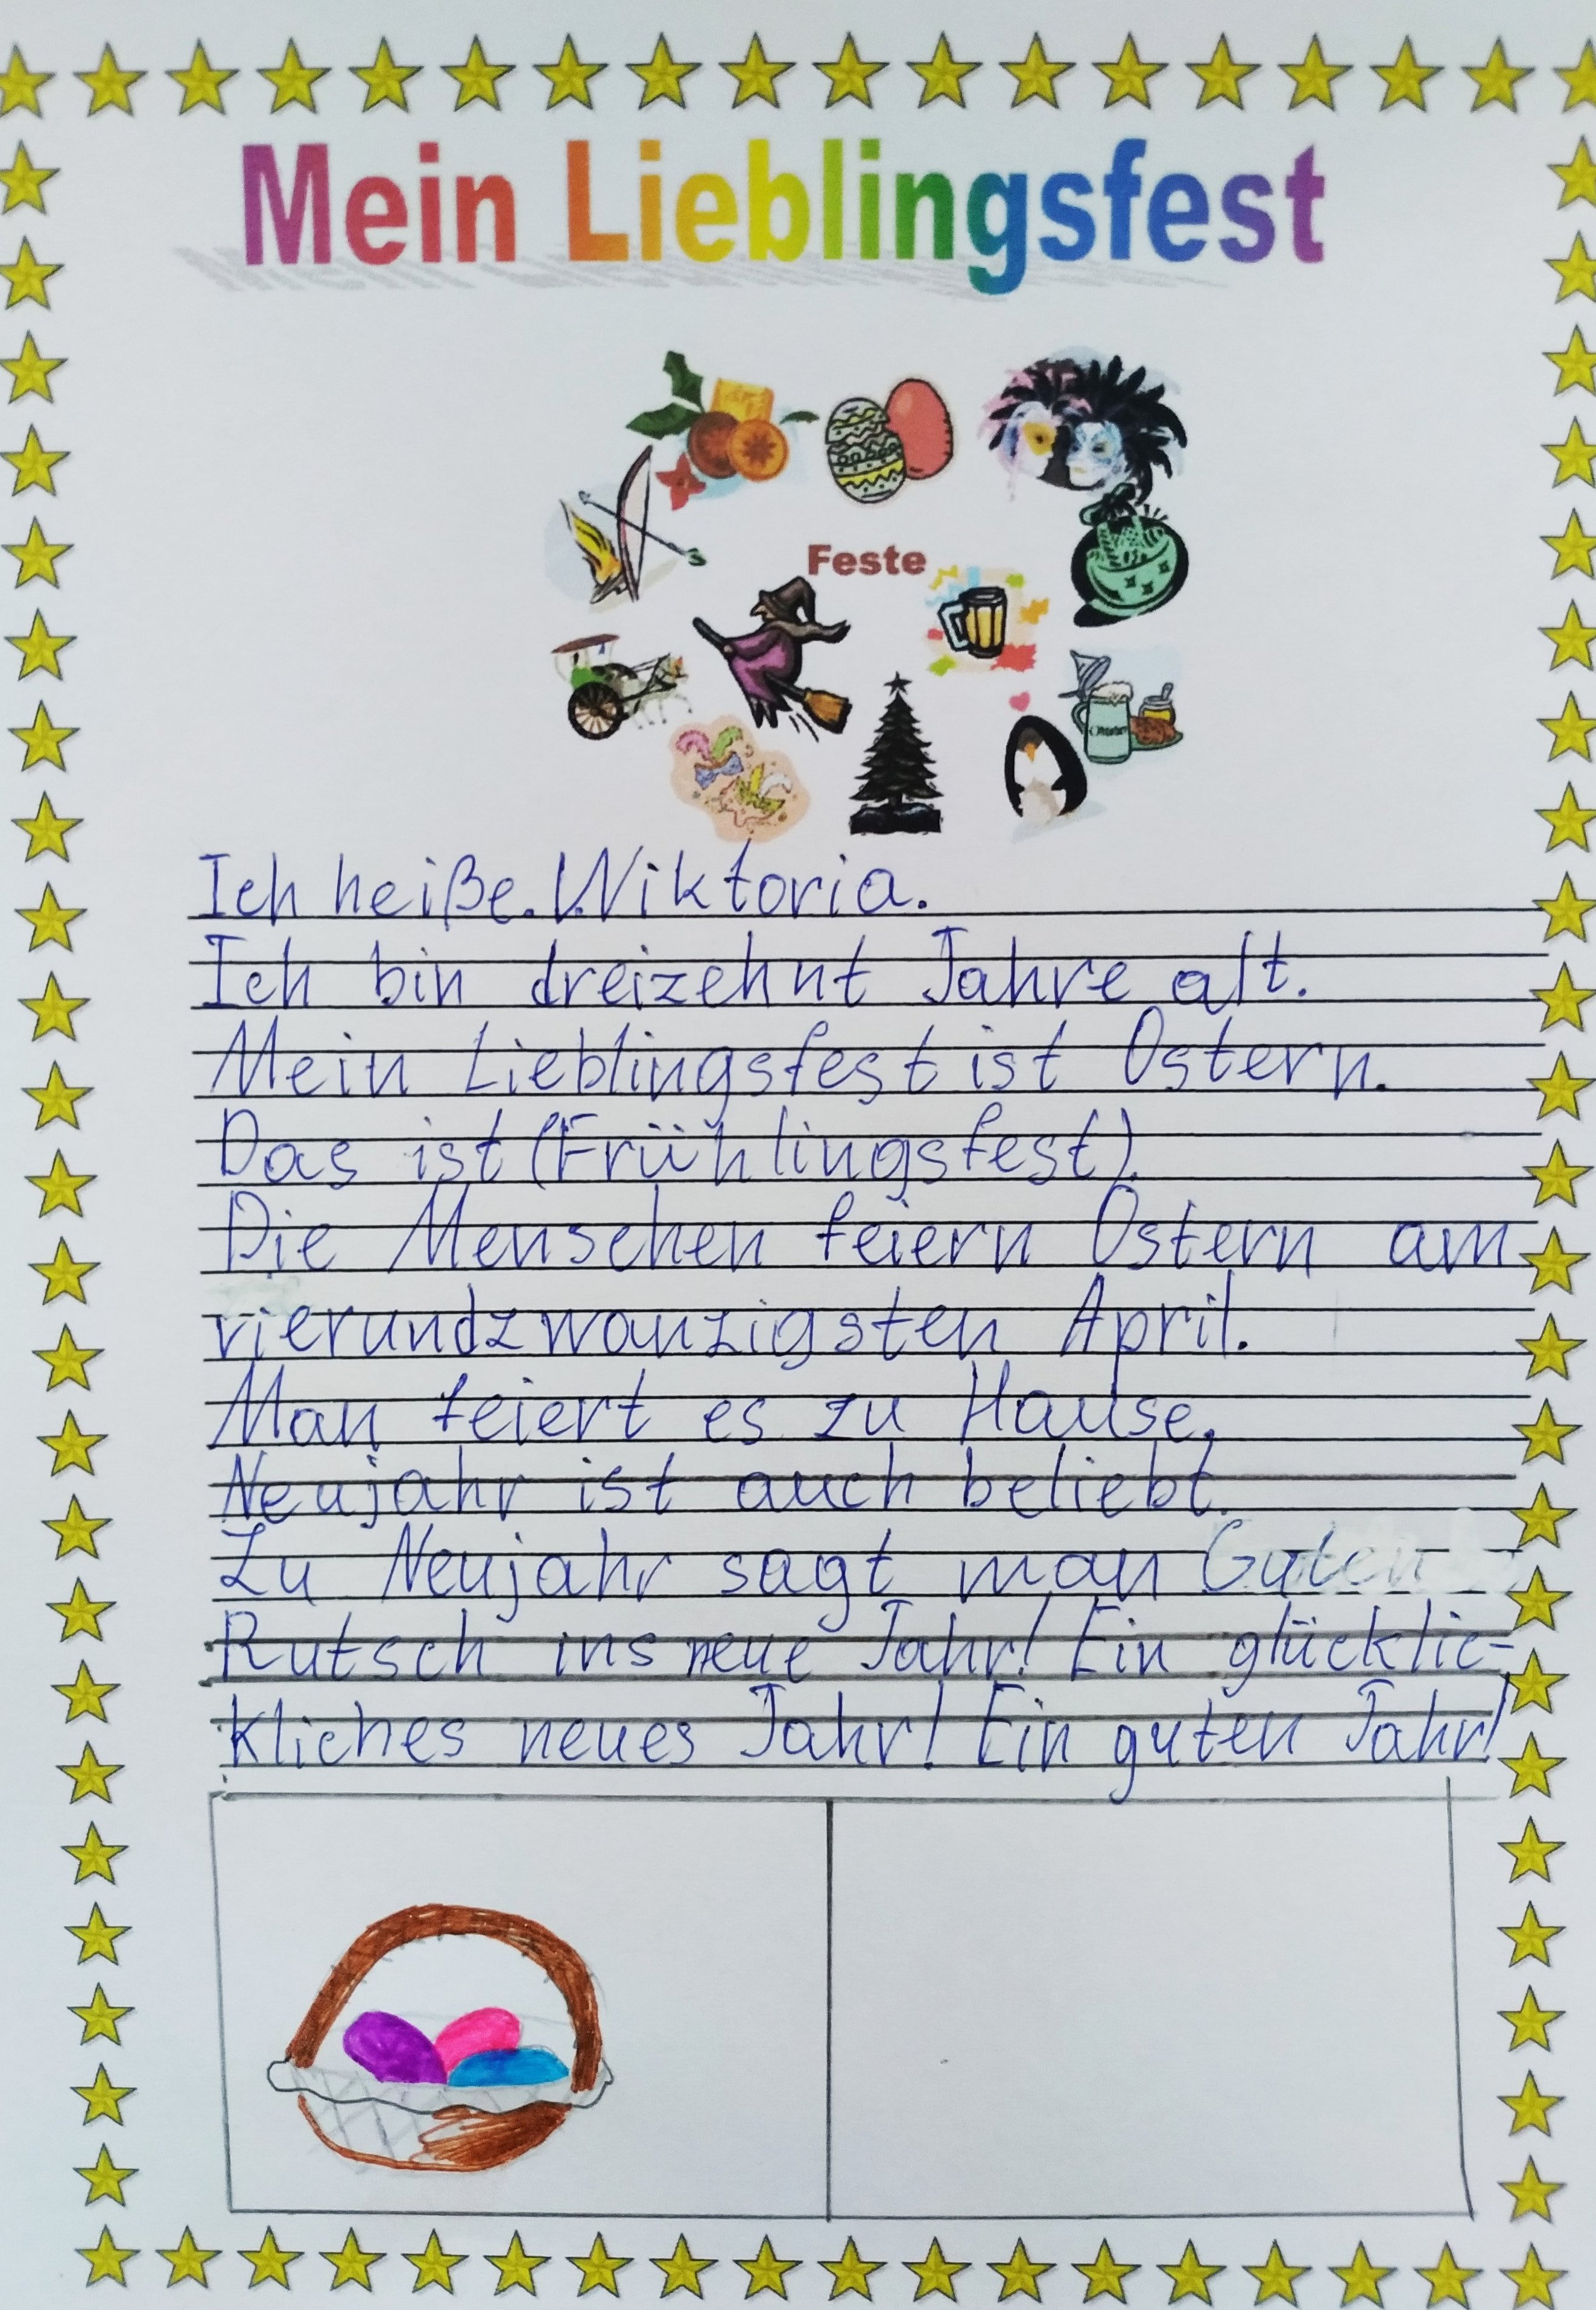 Mein Lieblingsfest
Feste
Ich heiße. Wiktoria.
Ich bin dreizehnt Jahre alt.
Mein Lieblingsfest ist Ostern.
Das ist (Frühlingsfest).
Die Menschen feiern Ostern am
vierundzwanzigsten April.
Man feiert es zu Hause.
Neujahr ist auch beliebt.
Zu Neujahr sagt man Guten
Rutsch ins neue Jahr! Ein glücklic-
kliches neues Jahr! Ein guten Jahr!